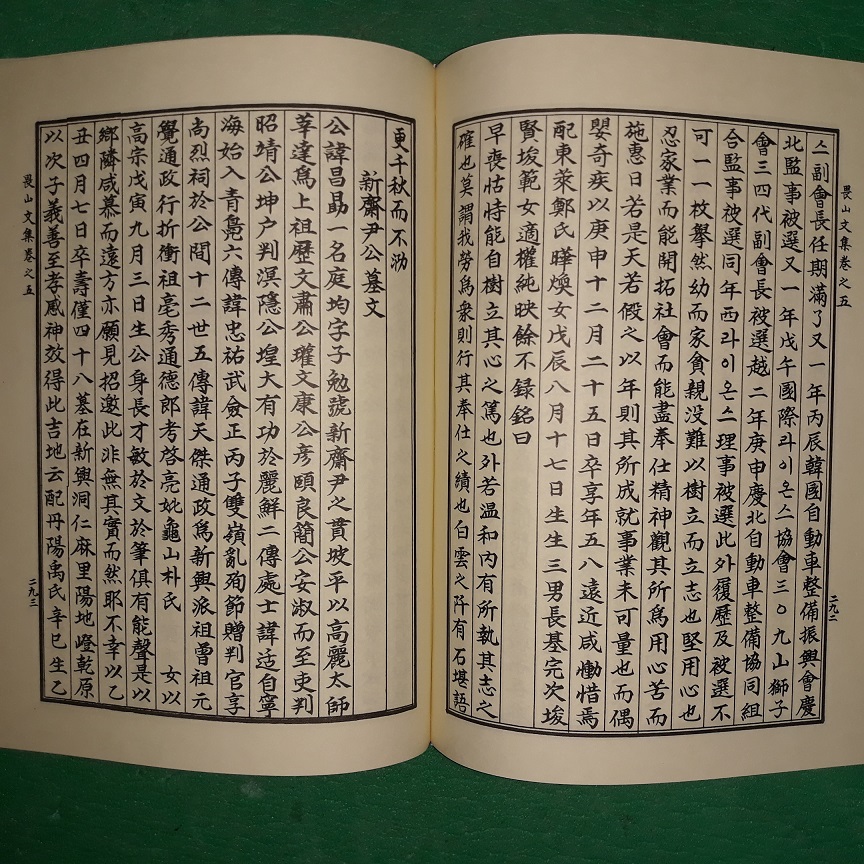 畏山文集卷之五
二九二
스副會長任期滿了又一年丙辰韓國自動車整備振興會慶
北監事被選又一年戊午國際라이온스協會三〇九山獅子
會三四代副會長被選越二年庚申慶北自動車整備協同組
合監事被選同年西라이온스理事被選此外履歷及被選不
可一一枚擧然幼而家貧親没難以樹立而立志也堅用心也
忍家業而能開拓社會而能盡奉仕精神觀其所爲用心苦而
施惠日若是天若假之以年則其所成就事業未可量也而偶
嬰奇疾以庚申十二月二十五日卒享年五八遠近咸慟惜焉
配東萊鄭氏曄煥女戊辰八月十七日生生三男長基完次埈
賢埈範女適權純映餘不録銘曰
早喪怙恃能自樹立其心之篤也外若溫和內有所執其志之
確也莫謂我勞爲衆則行其奉仕之績也白雲之阡有石堪語
更千秋而不泐
新齋尹公墓文
公諱昌勗一名庭均字子勉號新齋尹之貫坡平以高麗太師
莘達爲上祖歷文肅公瓘文康公彦頤良簡公安淑而至吏判
昭靖公坤户判淏隱公埋大有功於麗鮮二傳處士諱适自寧
海始入青鳧六傳諱忠祐武僉正丙子雙嶺亂殉節贈判官享
尚烈祠於公間十二世五傳諱天傑通政爲新興派祖曾祖元
覺通政行折衝祖亳秀通德郎考啓亮妣龜山朴氏 女以
高宗戊寅九月三日生公身長才敏於文於筆俱有能聲是以
鄉隣咸慕而遠方亦願見招邀此非無其實而然耶不幸以乙
丑四月七日卒壽僅四十八墓在新興洞仁麻里陽地嶝乾原
以次子義善至孝感神效得此吉地云配丹陽禹氏辛巳生乙
畏山文集卷之五
二九三